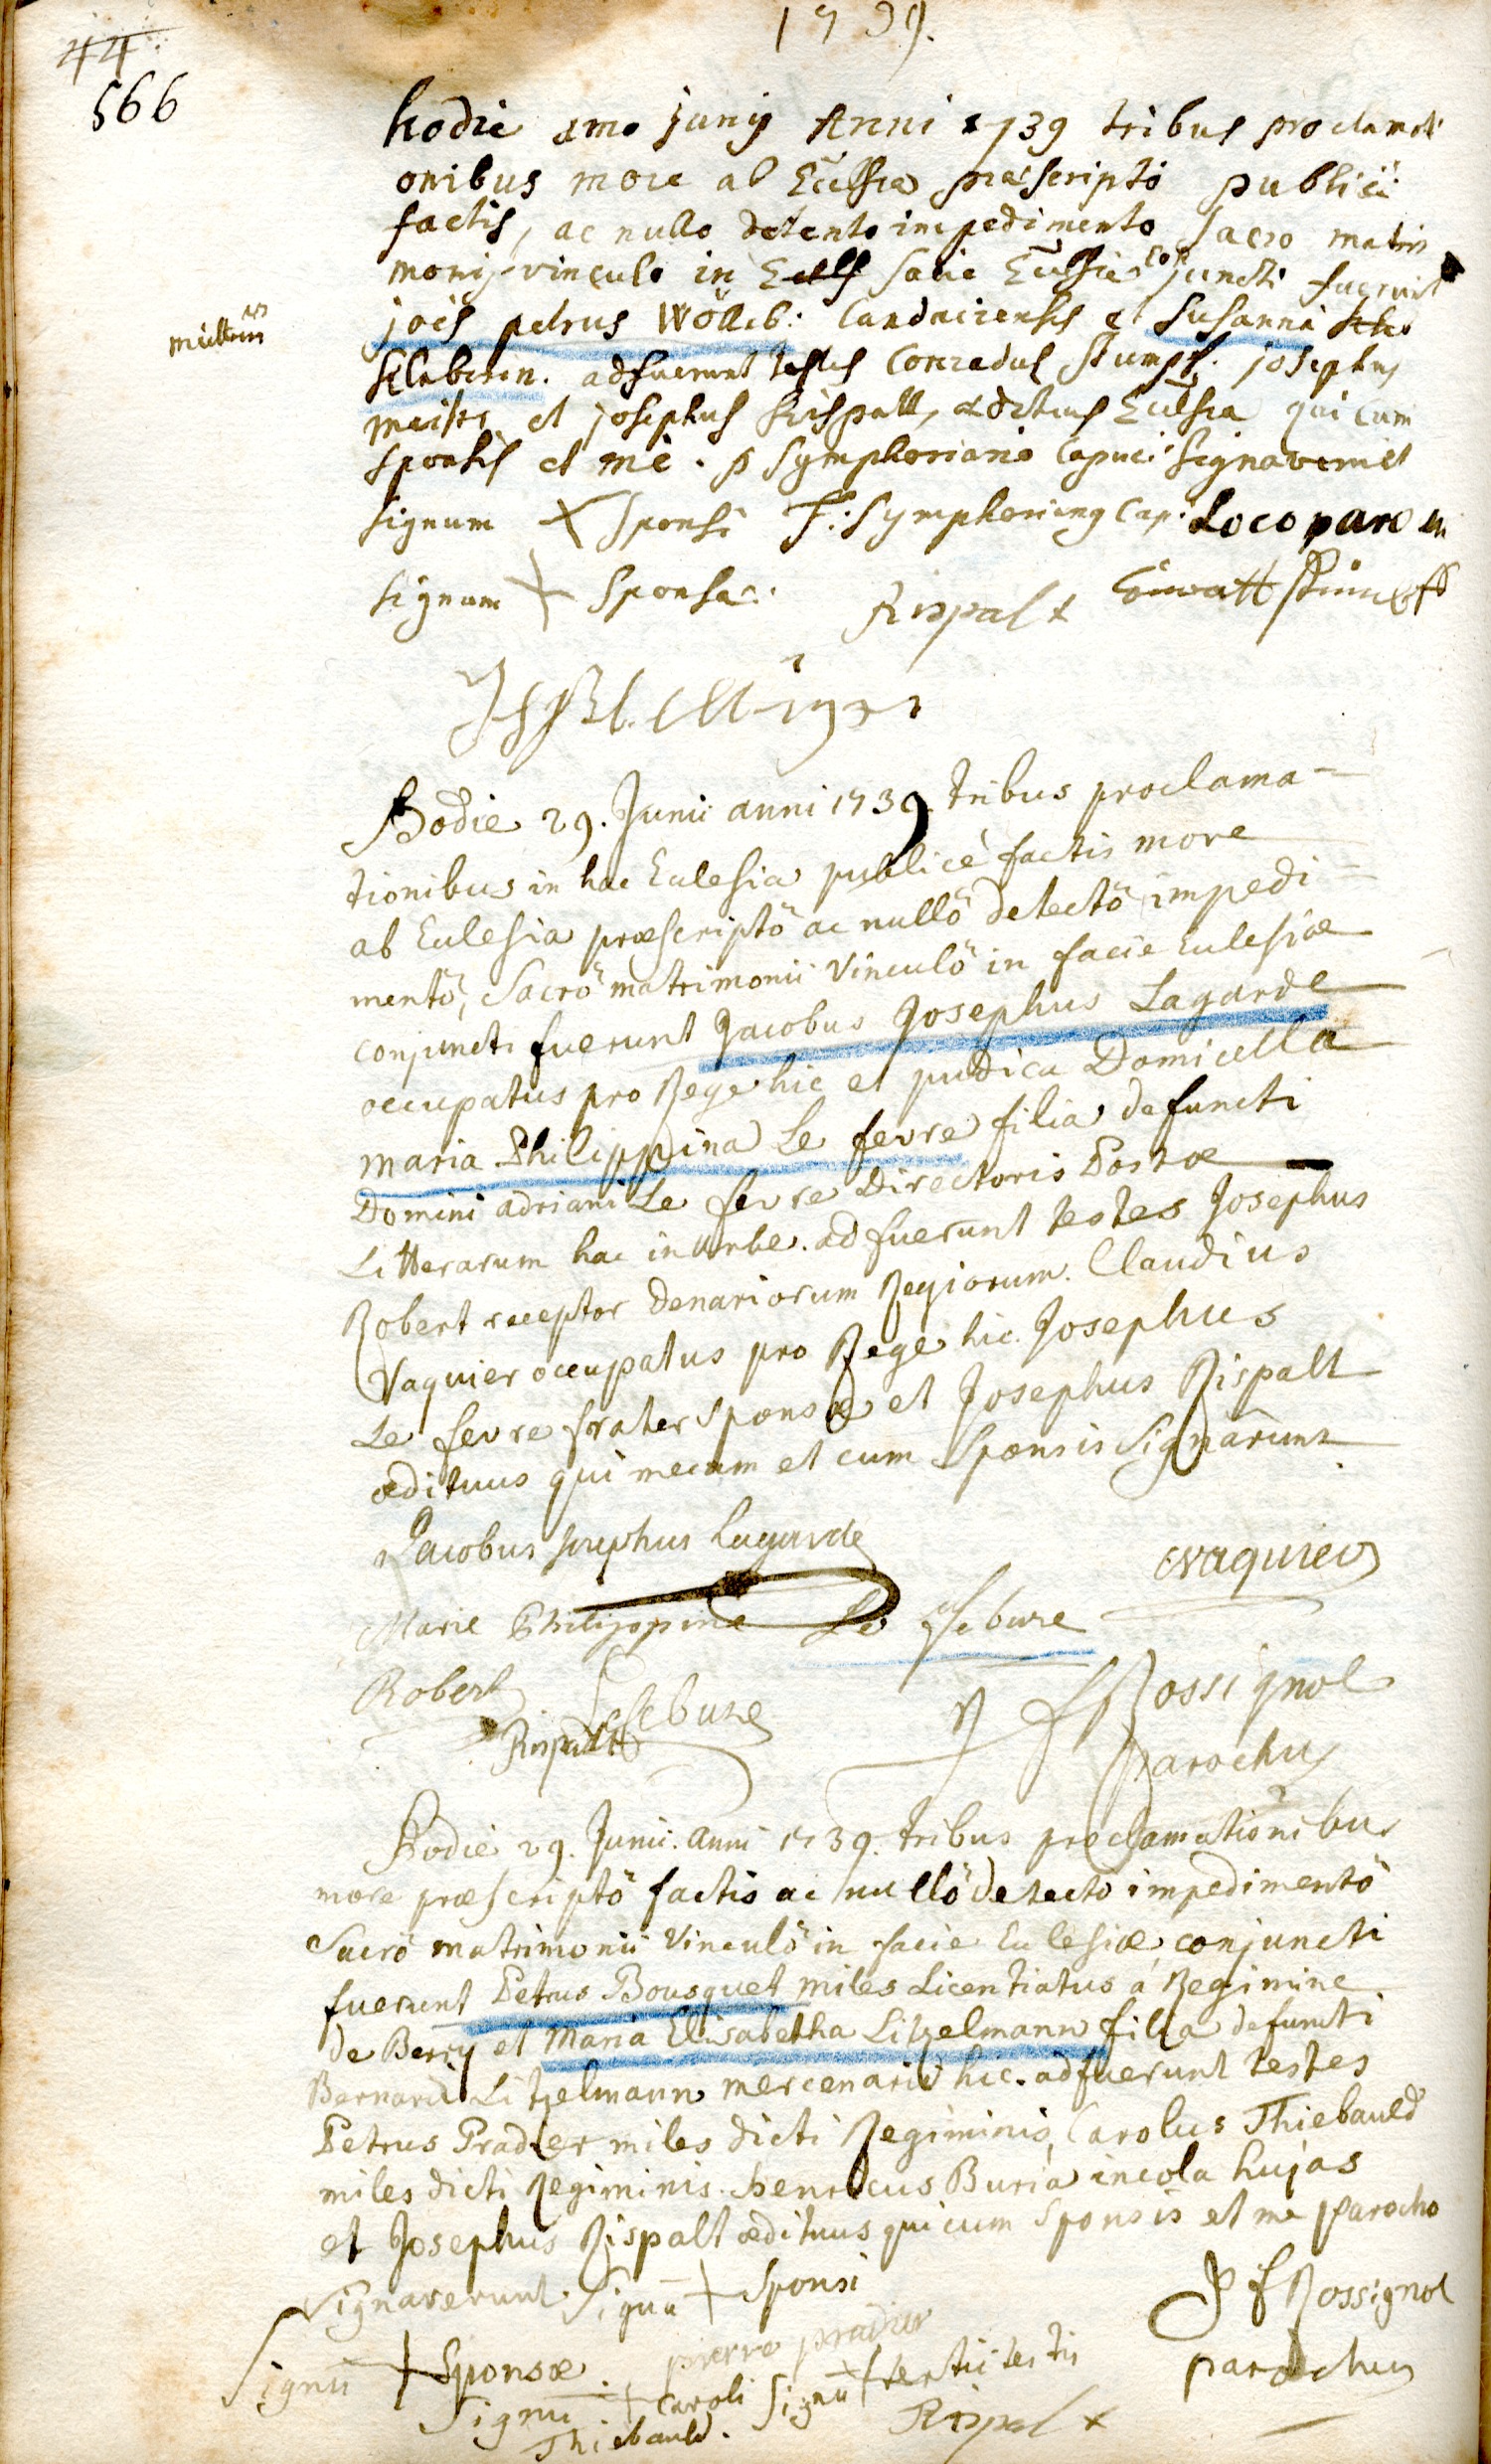 1739.
44
566
hodie 1mo junij Anni 1739 tribus proclamati
onibus more ab Ecclsia praescripto publicè
factis, ac nullo detento impedimento sacro matri
monij vinculo in facie Ecclsiae conjuncti fuerunt
joes petrus Wölleb: et Susanna
adfuerunt testes Conradus Stumpff. josephus
et josephus Rispalt, aedituus Ecclsia qui cum
sponsis et me. p Symphoriano Capuci signaverunt
signum + sponsi F: Symphorianus Cap: Loco paro
signum + sponsae.
Rispalt
Hodie 29. Junii anni 1739 tribus proclama-
tionibus in hac Eclesia publicè factis more
ab Eclesia præscriptô ac nullô detectô impedi=
mentô, Sacrô matrimonii Vinculô in facie Eclesiæ
conjuncti fuerunt Jacobus Josephus Lagarde
occupatus pro Rege hic et pudica Domicella
maria Philippina Le fevre filia defuncti
Domini adriani Le fevre Directoris Postæ
Litterarum hac in urbe. adfuerunt testes Josephus
Robert receptor denariorum Regiorum. Claudius
Vaquier occupatus pro Rege hic. Josephus
Le fevre frater sponsæ et Josephus Rispalt
ædituus qui mecum et cum Sponsis Signârunt.
Jacobus Josephus Lagarde
Vaquier
Marie Philippine Le febure
Robert Lefebure
Rispalt
J f Rossignol
parochus
Hodie 29. Junii. anni 1739. tribus proclamationibus
more præscriptô factis ac nullô detectô impedimentô
Sacrô matrimonii Vinculô in facie Eclesiæ conjuncti
fuerunt Petrus Bousquet miles Licentiatus á Regimine
de Berry et Maria Elisabetha Litzelmann filia defuncti
Bernardi Litzelmann mercenarii hic. adfuerunt testes
Petrus Pradier miles dicti Regiminis, Carolus Thiebauld
miles dicti Regiminis. henricus Buria incola hujas
et Josephus Rispalt ædituus qui cum Sponsis et me parocho
Signaverunt. Signũ + Sponsi
J f Rossignol
parochus
Signũ + Sponsæ. pierre pradier
Signũ + Caroli Thiebauld. Signũ + tertii testis
Rispalt